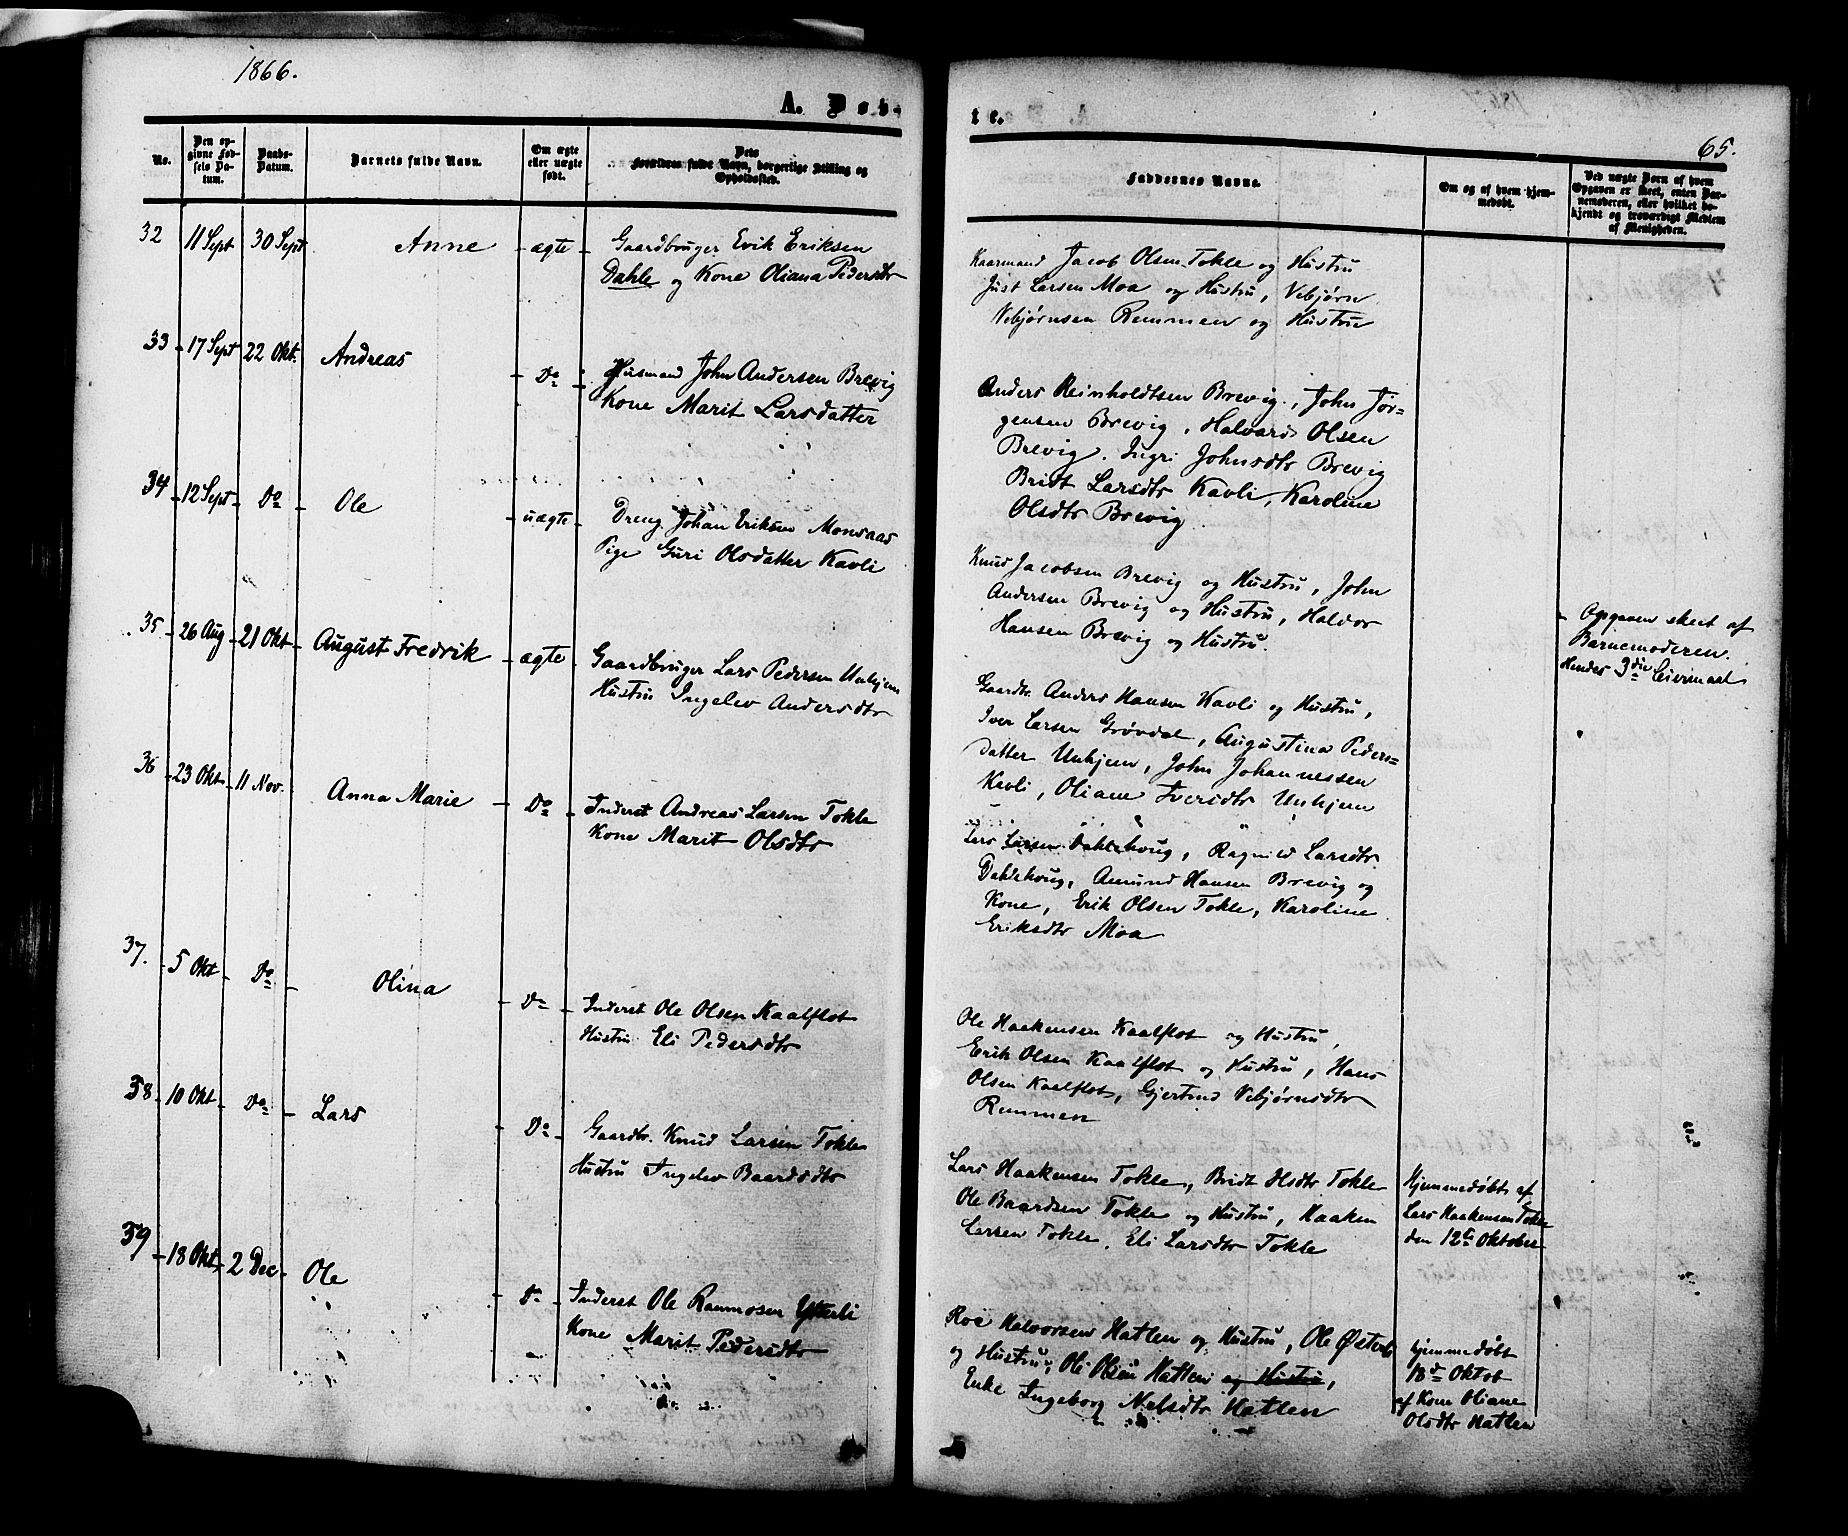 1866.
A. Døbte.
65.
No.
Den opgivne Fødsels Datum.
Daabs-Datum.
Barnets fulde Navn.
Om ægte eller uægte født.
Dets Forældres fulde Navn, borgerlige Stilling og Opholdssted.
Faddernes Navne.
Om og af hvem hjemmedøbt.
Ved uægte Børn af hvem Opgaven er skeet, enten Barnemoderen, eller hvilket bekjendt og troværdigt Medlem af Menigheden.
32 11 Sept 30 Sept Anne ægte Gaardbruger Erik Eriksen
Dahle og Kone Oliana Pedersdtr
Kaarmand Jacob Olsen Tokle og Hustru
Just Larsen Moa og Hustru, Vebjørn
Vebjørnsen Remmen og Hustru
33 17 Sept 22 Okt. Andreas Do Husmand John Andersen Brevig
Kone Marit Larsdatter
Anders Reinholdtsen Brevig, John Jør-
gensen Brevig, Halvard Olsen
Brevig. Ingri Johnsdtr Brevig
Bridt Larsdtr Kavli, Karoline
Olsdtr Brevig
34 12 Sept Do Ole uægte Dreng Johan Eriksen Monsaas
Pige Guri Olsdatter Kavli
Knud Jacobsen Brevig og Hustru, John
Andersen Brevig og Hustru, Haldor
Hansen Brevig og Hustru.
Opgaven skeet af
Barnemoderen.
Hendes 3die Leiermaal
35 26 Aug 21 Okt August Fredrik ægte Gaardbruger Lars Pedersen Unhjem
Hustru Ingelev Andersdtr
Gaardbr. Anders Hansen Kavli og Hustru,
Iver Larsen Grøvdal, Augustina Peders-
datter Unhjem, John Johannessen
Kavli, Oliane Iversdtr Unhjem
36 23 Okt 11 Nov. Anna Marie Do Inderst Andreas Larsen Tokle
Kone Marit Olsdtr
Lars Larsen Dahlehoug, Ragnild Larsdtr
Dahlehoug, Amund Hansen Brevig og
Kone, Erik Olsen Tokle, Karoline
Eriksdtr Moa
37. 5 Okt Do Olina Do Inderst Ole Olsen Kaalflot
Hustru Eli Pedersdtr
Ole Haakensen Kaalflot og Hustru,
Erik Olsen Kaalflot og Hustru, Hans
Olsen Kaalflot, Gjertrud Vebjørnsdtr
Remmen
38 10 Okt Do Lars Do Gaardbr. Knud Larsen Tokle
Hustru Ingelev Baardsdtr
Lars Haakensen Tokle, Bridt Olsdtr Tokle
Ole Baardsen Tokle og Hustru, Haaken
Larsen Tokle, Eli Larsdtr Tokle
Hjemmedøbt af
Lars Haakensen Tokle
den 12te Oktober
39 18 Okt 2 Dec Ole Do Inderst Ole Rasmussen Ytterli
Kone Marit Pedersdtr
Roe Halvorsen Hatlen og Hustru, Ole
og Hustru, Ole Olsen Hatlen og Hustru,
Enke Ingeborg Nelsdtr Hatlen
hjemmedøbt
18d Oktob
af Kone Oliane
Olsdtr Hatlen